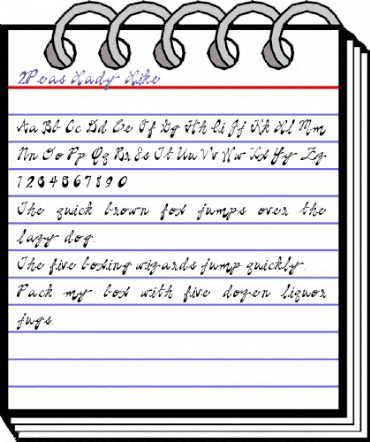 2Peas Lady Like
Aa Bb Cc Dd Ee Ff Gg Hh Ii Jj Kk Ll Mm
Nn Oo Pp Qq Rr Ss Tt Uu Vv Ww Xx Yy Zz
1 2 3 4 5 6 7 8 9 0
The quick brown fox jumps over the
lazy dog.
The five boxing wizards jump quickly.
Pack my box with five dozen liquor
jugs.